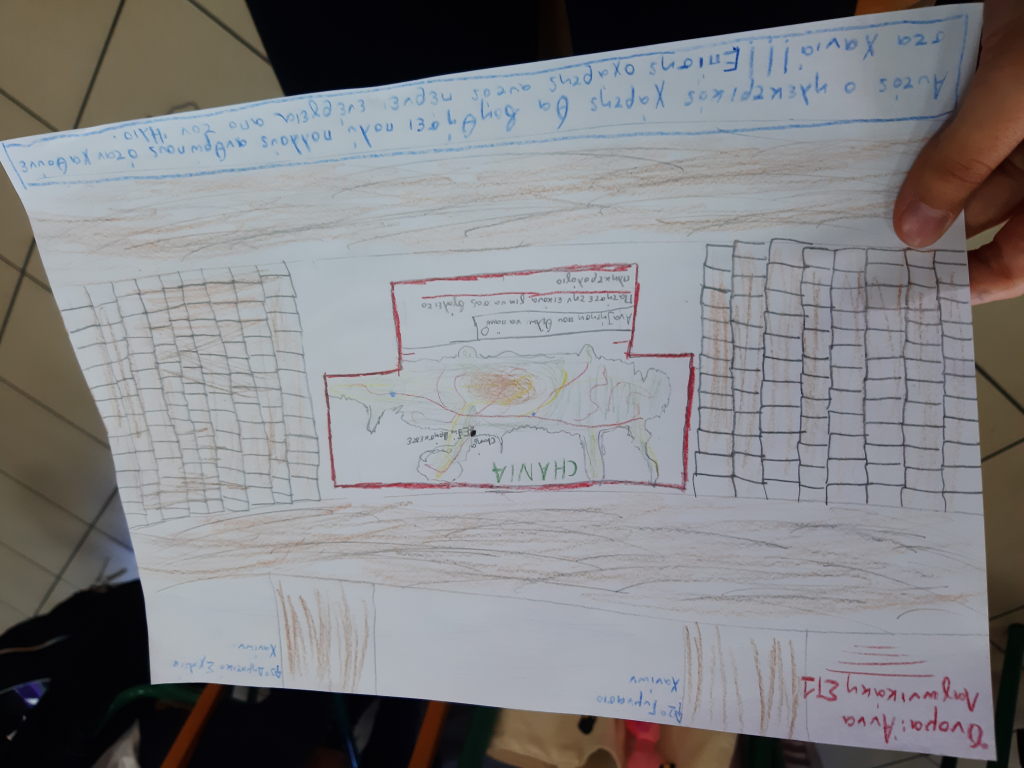 Όνομα: Άννα
Λαγωνικάκη ΣΤ1
2ο Γυμνάσιο
Χανίων
Δημοτικό Σχολείο
Χανίων
CHANIA
Chania
Αναζήτηση που θέλω να πάω
Πατήστε την εικόνα, για να σας βγάλει το
πληκτρολόγιο
Αυτός ο ηλεκτρικός χάρτης θα βοηθήσει πολύ, πολλούς ανθρωπους όταν χαθούνε
στα Χανιά!!! Επίσης ο χαρτης αυτός περνει ενέργεια απο τον Ήλιο.